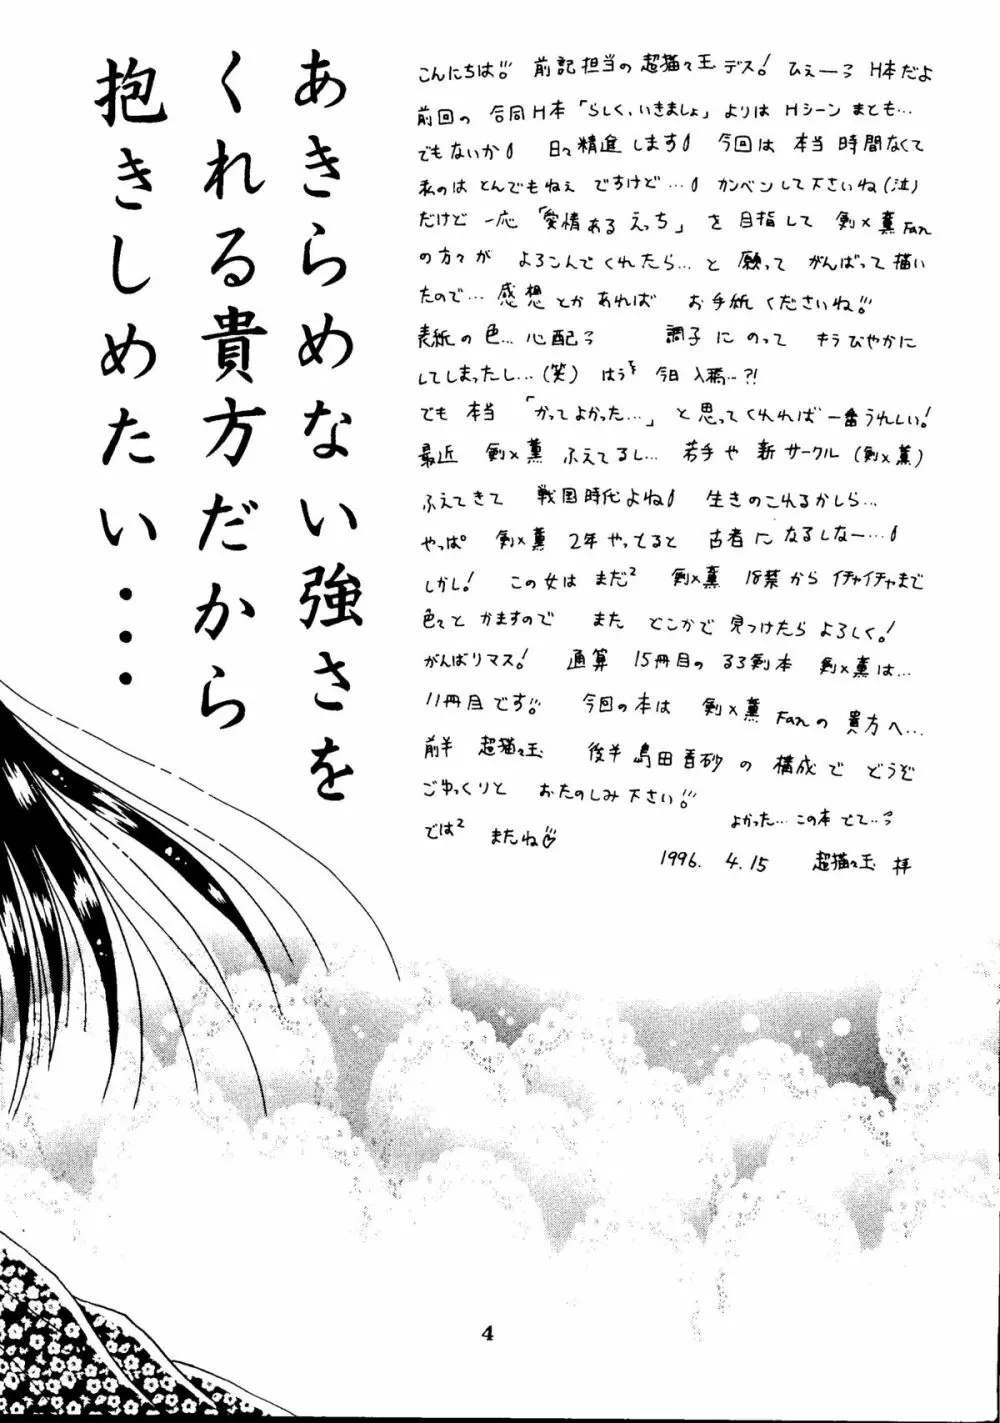 あきらめない強さを
くれる貴方だから
抱きしめたい・・・
こんにちは!! 前記担当の超猫々玉デス! ひぇーっ H本だよ
前回の 合同H本「らしく、いきましょ」よりは Hシーン まとも…
でもないか 日々精進します 今回は 本当 時間なくて
私のは とんでもねぇ ですけど… カンベンして下さいね(泣)
だけど 一応 「愛情ある えっち」を 目指して 剣×薫Fan
の方々が よろこんでくれたら…と 願って がんばって描い
たので… 感想とかあれば お手紙くださいね!!
表紙の色…心配っ 調子にのって きらびやかに
してしまったし…(笑) はうぞ 今日入稿…?!
でも 本当 「かってよかった…」と思ってくれれば一番うれしい!
最近 剣×薫 ふえてるし… 若手や 新サークル(剣×薫)
ふえてきて 戦国時代よね 生きのこれるかしら…
やっぱ 剣×薫 2年やってると 古者に なるしなー…
しかし! この女は まだ² 剣×薫 18禁から イチャイチャまで
色々と かますので また どこかで 見つけたら よろしく!
がんばリマス! 通算 15冊目の るろ剣本 剣×薫は…
11冊目です!! 今回の本は 剣×薫Fanの 貴方へ…
前半 超猫々玉 後半 島田吾砂の 構成で どうぞ
ごゆっくりと おたのしみ下さい!!
では² またね♡ よかった…この本 でて…っ
1996. 4.15 超猫々玉 拝
4